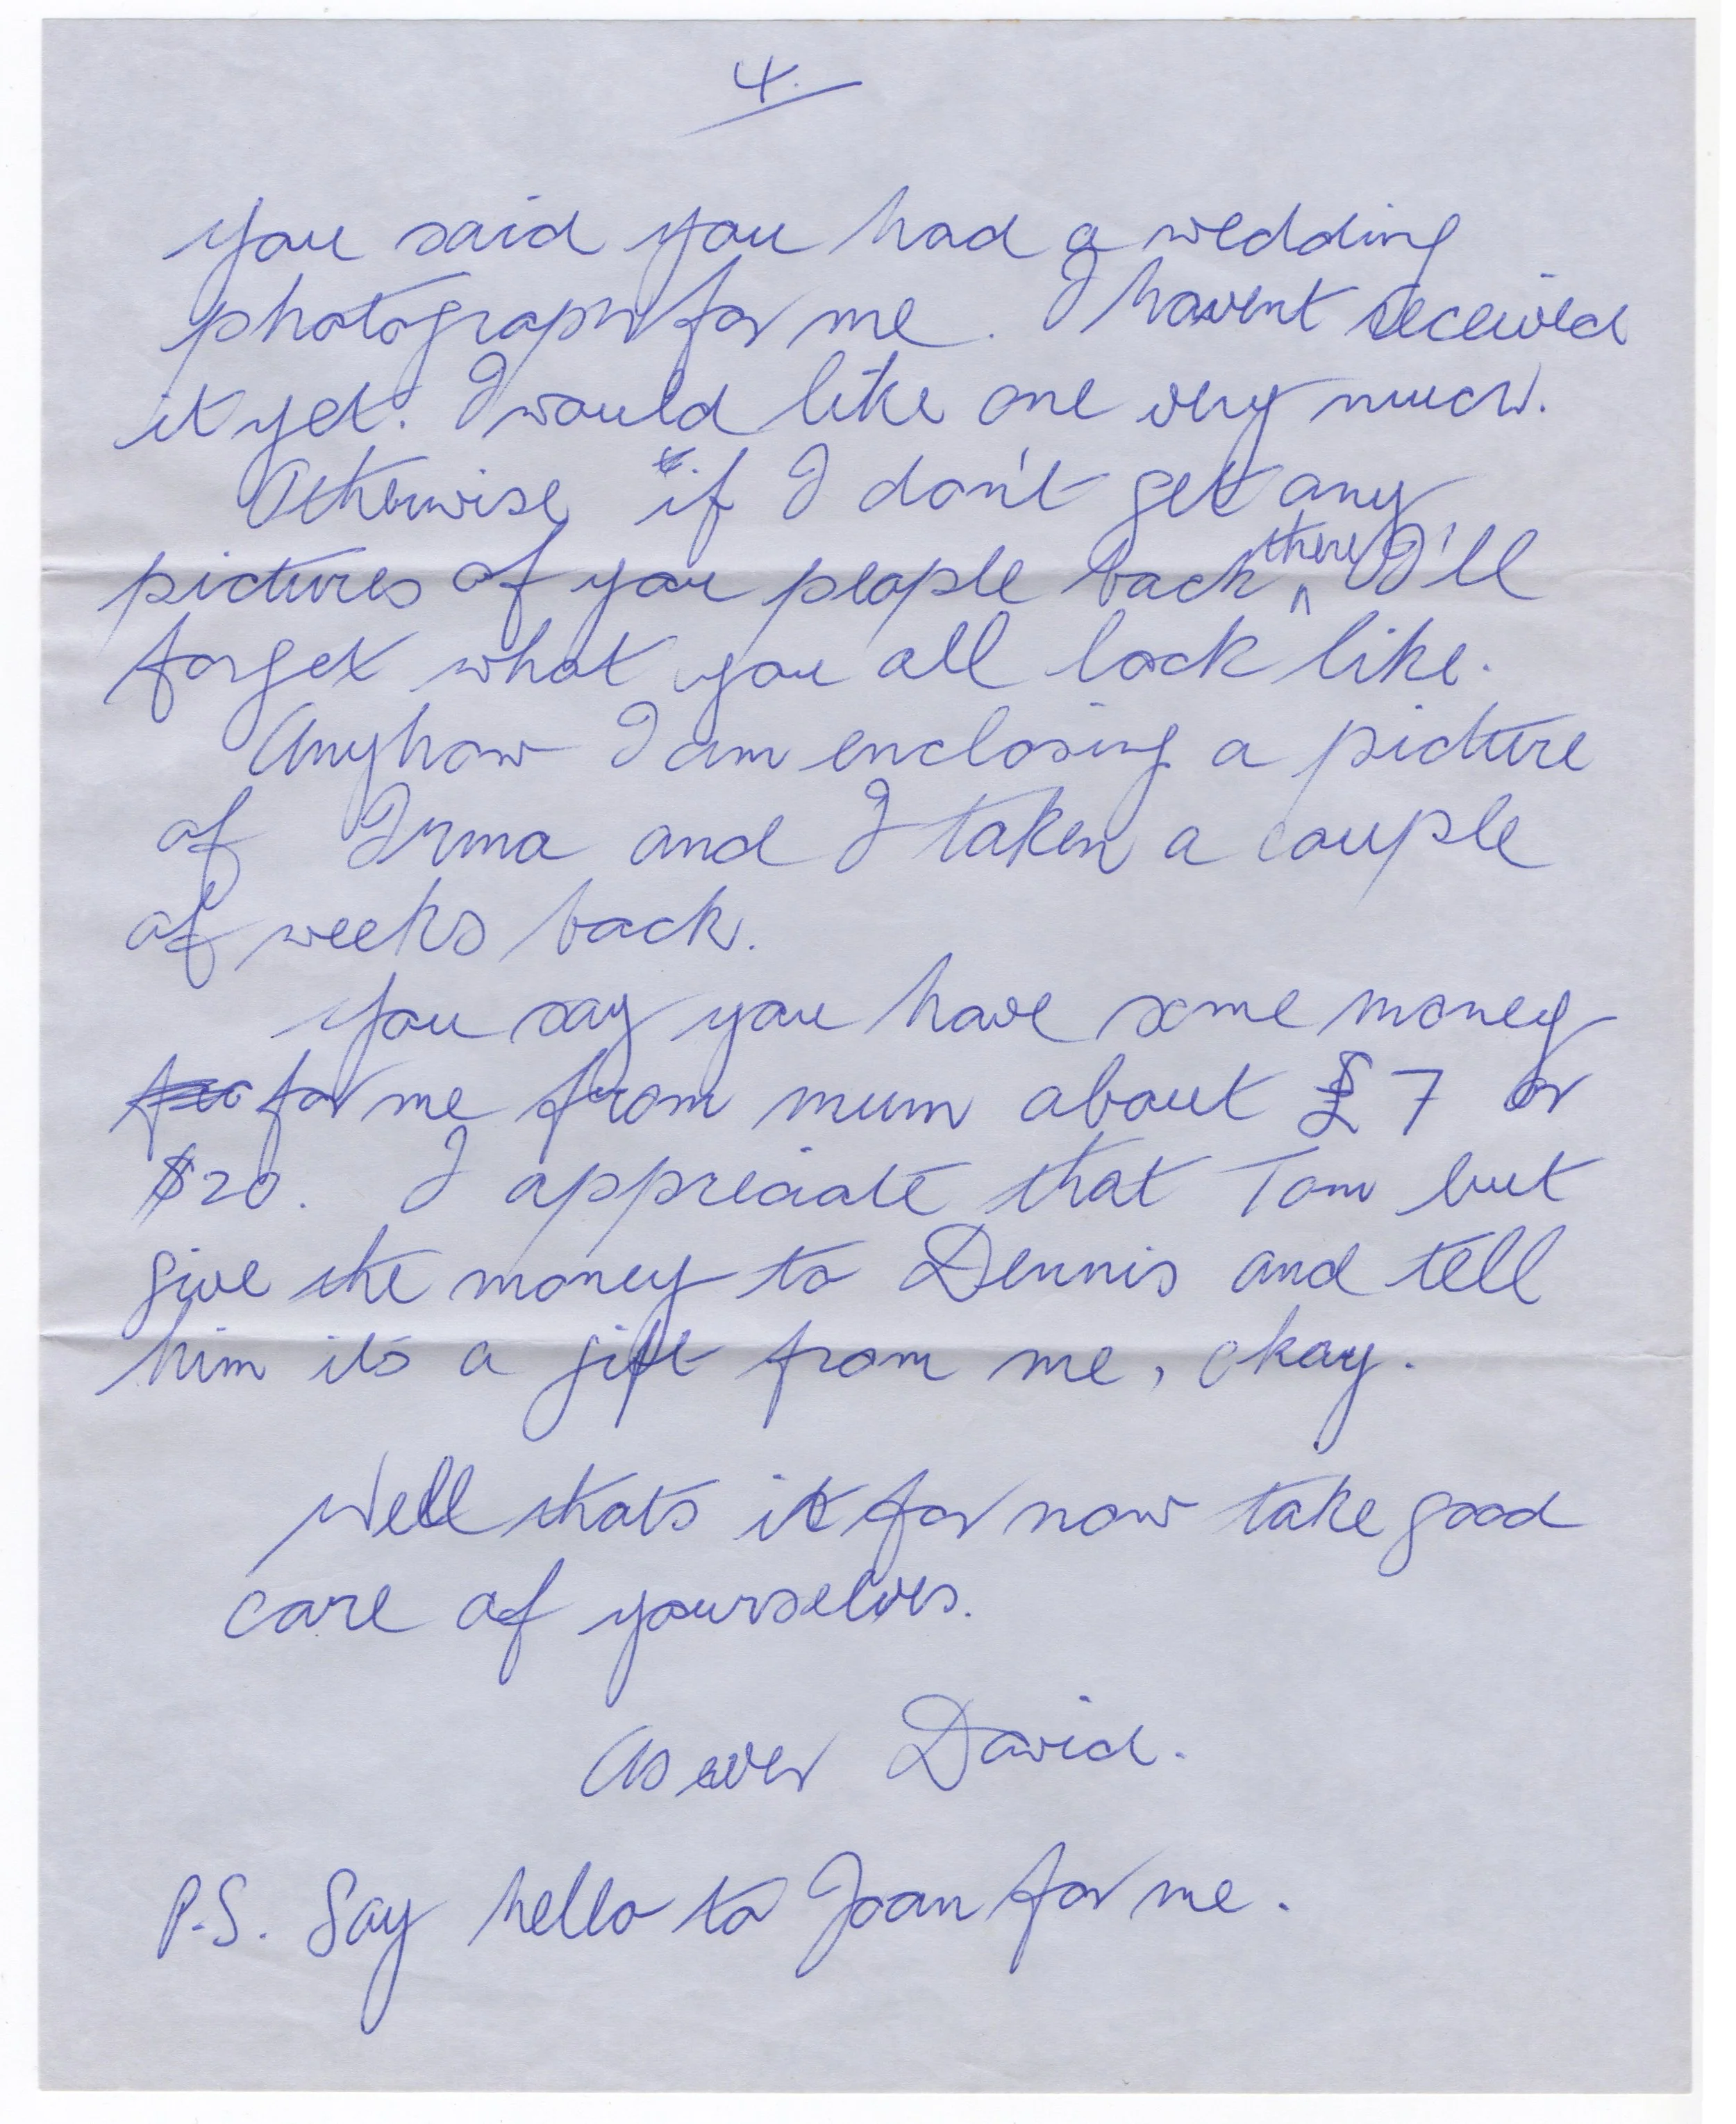 4.
you said you had a wedding
photograph for me. I havent received
it yet. I would like one very much.
Otherwise if I don't get any
pictures of you people back there I'll
forget what you all look like.
Anyhow I am enclosing a picture
of Irma and I taken a couple
of weeks back.
You say you have some money
for me from mum about £7 or
$20. I appreciate that Tom but
give the money to Dennis and tell
him its a gift from me, okay.
Well thats it for now take good
care of yourselves.
As ever David.
P.S. Say hello to Joan for me.